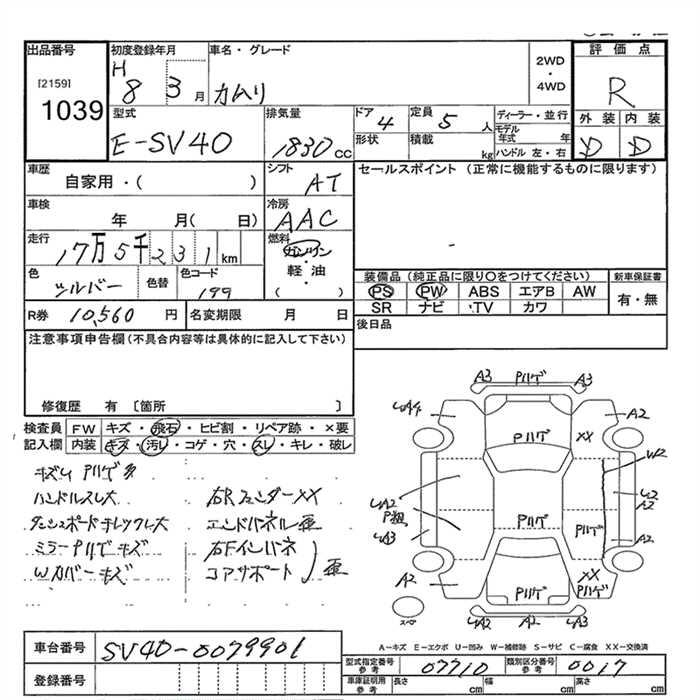 出品番号
[2159]
1039
初度登録年月
H 8 3 月
車名・グレード
カムリ
2WD
・
4WD
評価点
R
型式
E-SV40
排気量
1830 cc
ドア 4
形状
定員 5 人
積載 kg
ディーラー・並行
モデル年式 年
ハンドル 左・右
外装 内装
D D
車歴
自家用・( )
シフト
AT
セールスポイント (正常に機能するものに限ります)
車検
年 月( 日)
冷房
AAC
走行
17万5千231km
燃料
ガソリン
・
軽油
・
( )
色
シルバー
色替
色コード
199
装備品 (純正品に限り○をつけてください)
PS PW ABS エアB AW
SR ナビ TV カワ
新車保証書
有・無
R券 10,560 円
名変期限 月 日
後日品
注意事項申告欄 (不具合内容等は具体的に記入して下さい)
修復歴 有 〔箇所 〕
検査員 FW キズ・飛石・ヒビ割・リペア跡・×要
記入欄 内装 キズ・汚レ・コゲ・穴・スレ・キレ・破レ
キズ凹 Pハゲ多
ハンドルスレ大
ダッシュボードキレツ大
ミラーPハゲキズ
Wカバーキズ
右RフェンダーXX
エンドパネル歪
右Fインパネ
コアサポート 歪
A3 Pハゲ A3
A2
Pハゲ XX
W2
Pハゲ Pハゲ
A2
A2
A2
Pハゲ
XX
Pハゲ
スペア
A2 A3
A-キズ E-エクボ U-凹み W-補修跡 S-サビ C-腐食 XX-交換済
車台番号 SV40-0079901
登録番号
型式指定番号 参考 07710
類別区分番号 参考 0017
車庫証明用 参考 長さ cm 幅 cm 高さ cm